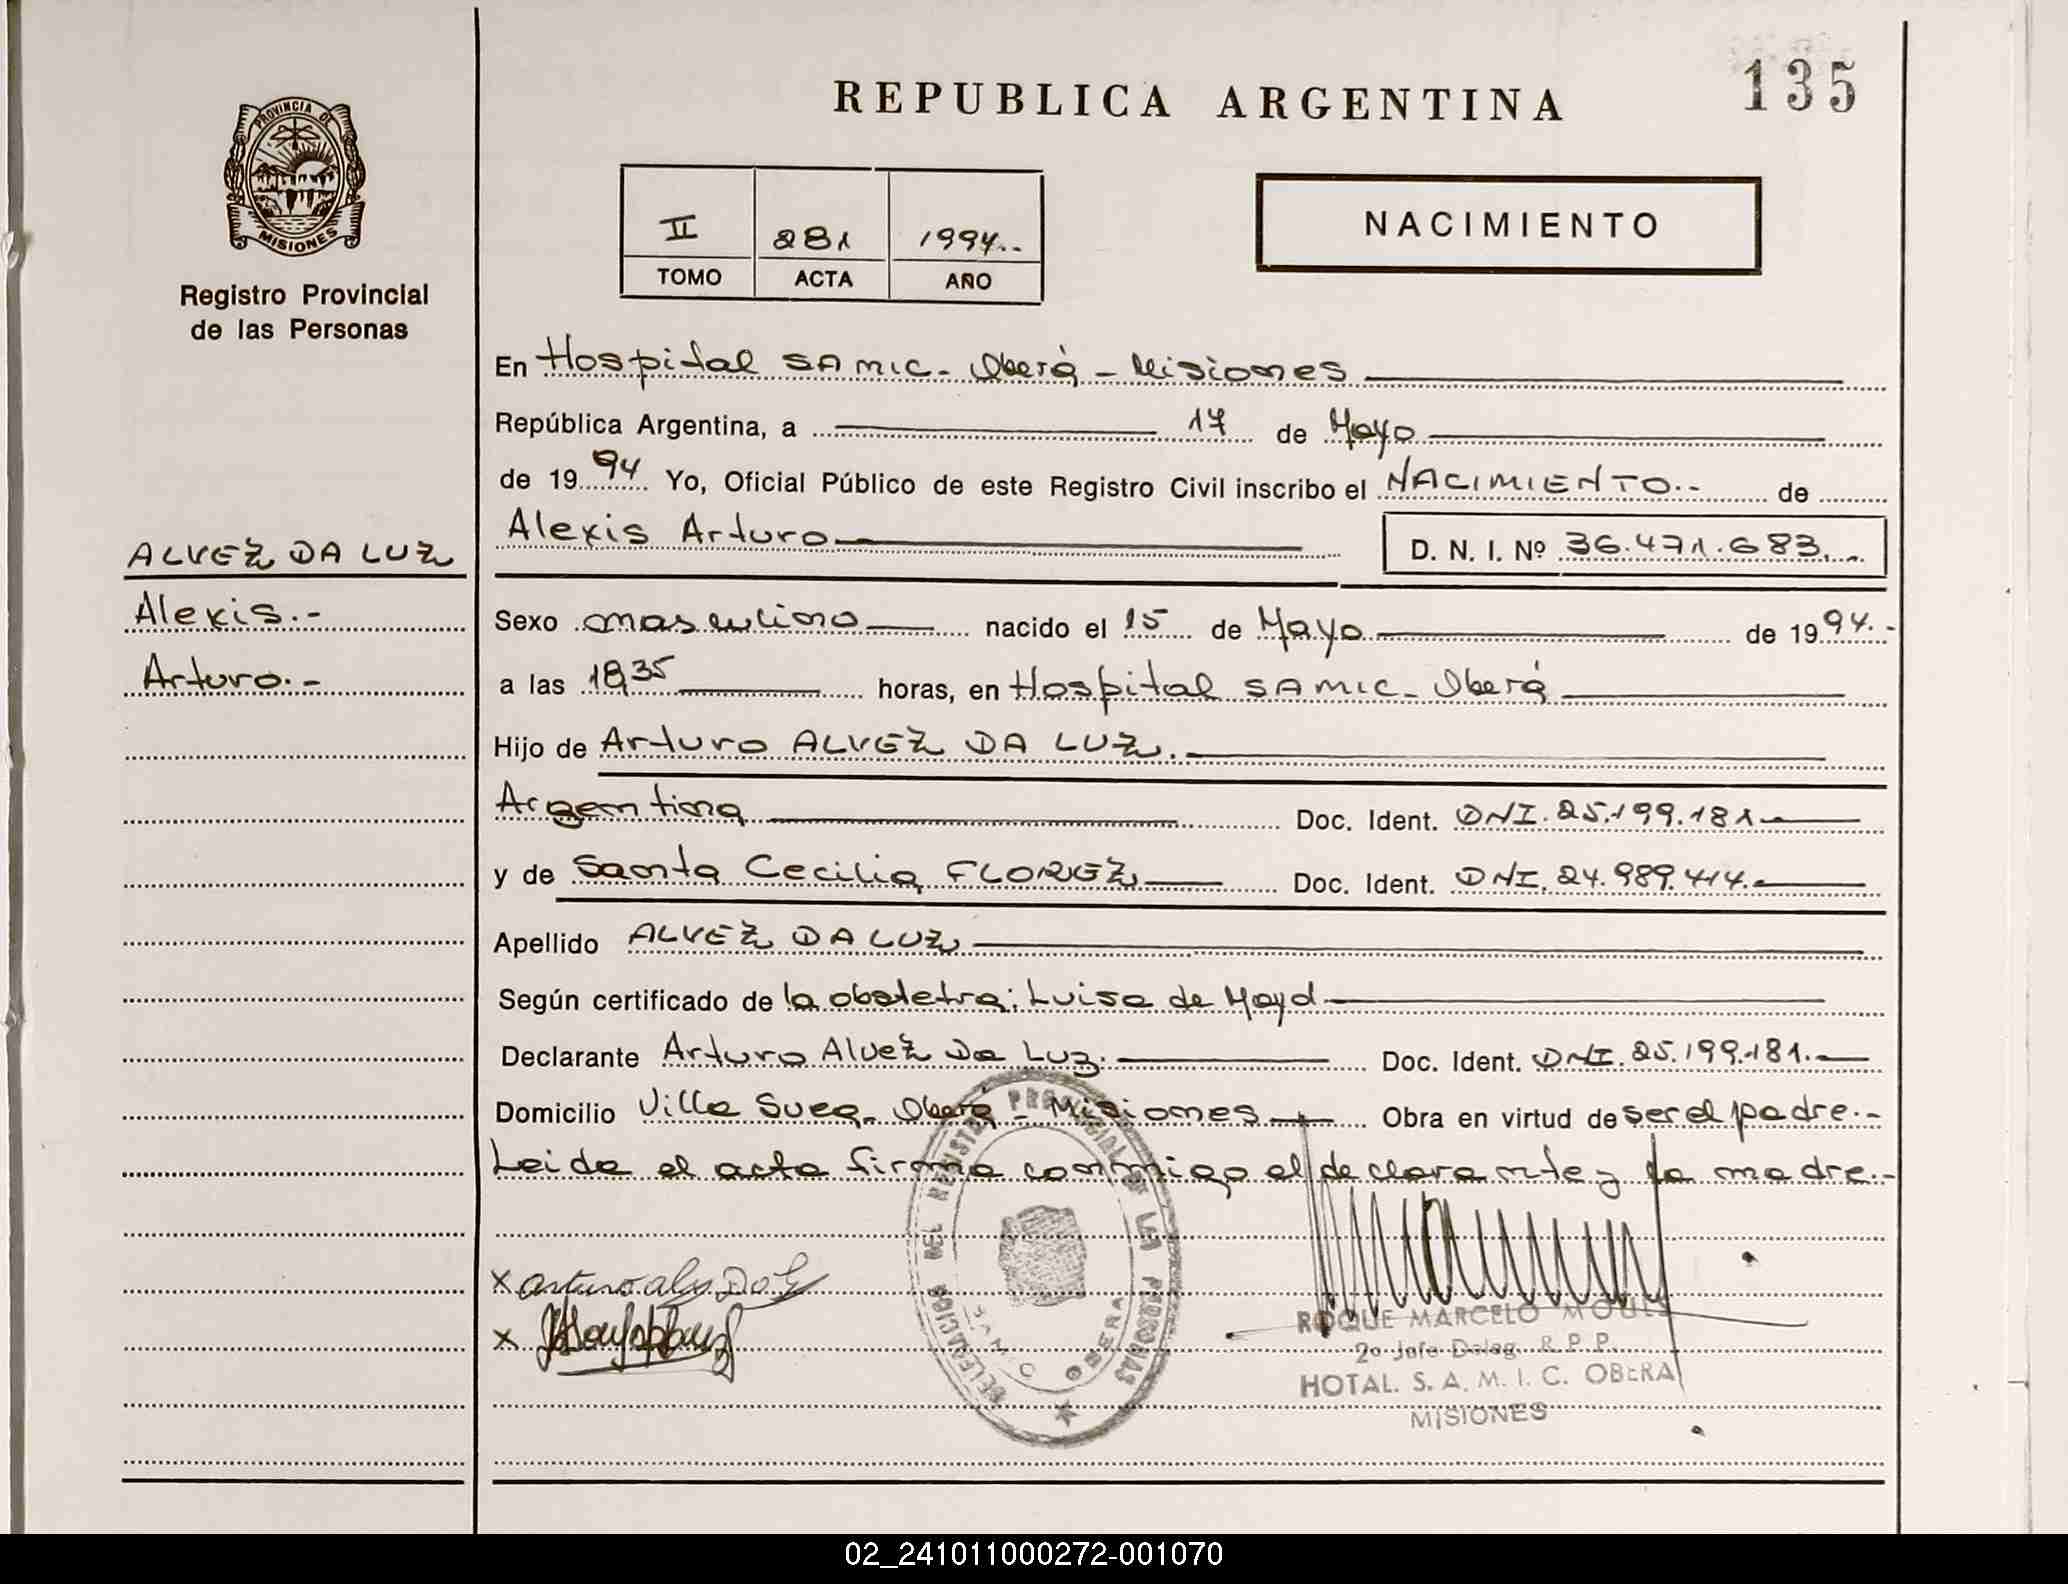 135
REPUBLICA ARGENTINA
PROVINCIA DE
MISIONES
Registro Provincial
de las Personas
II 281 1994..
TOMO ACTA AÑO
NACIMIENTO
En Hospital SAMIC - Oberá - Misiones
República Argentina, a 17 de Mayo
de 1994 Yo, Oficial Público de este Registro Civil inscribo el NACIMIENTO.- de
Alexis Arturo D. N. I. Nº 36.471.683.-
ALVEZ DA LUZ
Alexis.-
Arturo.-
Sexo masculino nacido el 15 de Mayo de 1994.-
a las 18,35 horas, en Hospital SAMIC - Oberá
Hijo de Arturo ALVEZ DA LUZ.
Argentina Doc. Ident. DNI. 25.199.181
y de Santa Cecilia FLOREZ Doc. Ident. DNI. 24.989.414.
Apellido ALVEZ DA LUZ
Según certificado de la obstetra: Luisa de Mayd
Declarante Arturo Alvez Da Luz. Doc. Ident. DNI. 25.199.181.
Domicilio Villa Sueca. Oberá - Misiones Obra en virtud de ser el padre.-
Leida el acta firma conmigo el declarante y la madre.-
DELEGACION DEL REGISTRO PROVINCIAL DE LAS PERSONAS
S.A.M.I.C. OBERA
x arturo
x
ROQUE MARCELO
2º Jefe Deleg. R. P. P.
HOTAL. S. A. M. I. C. OBERA
MISIONES
02_241011000272-001070